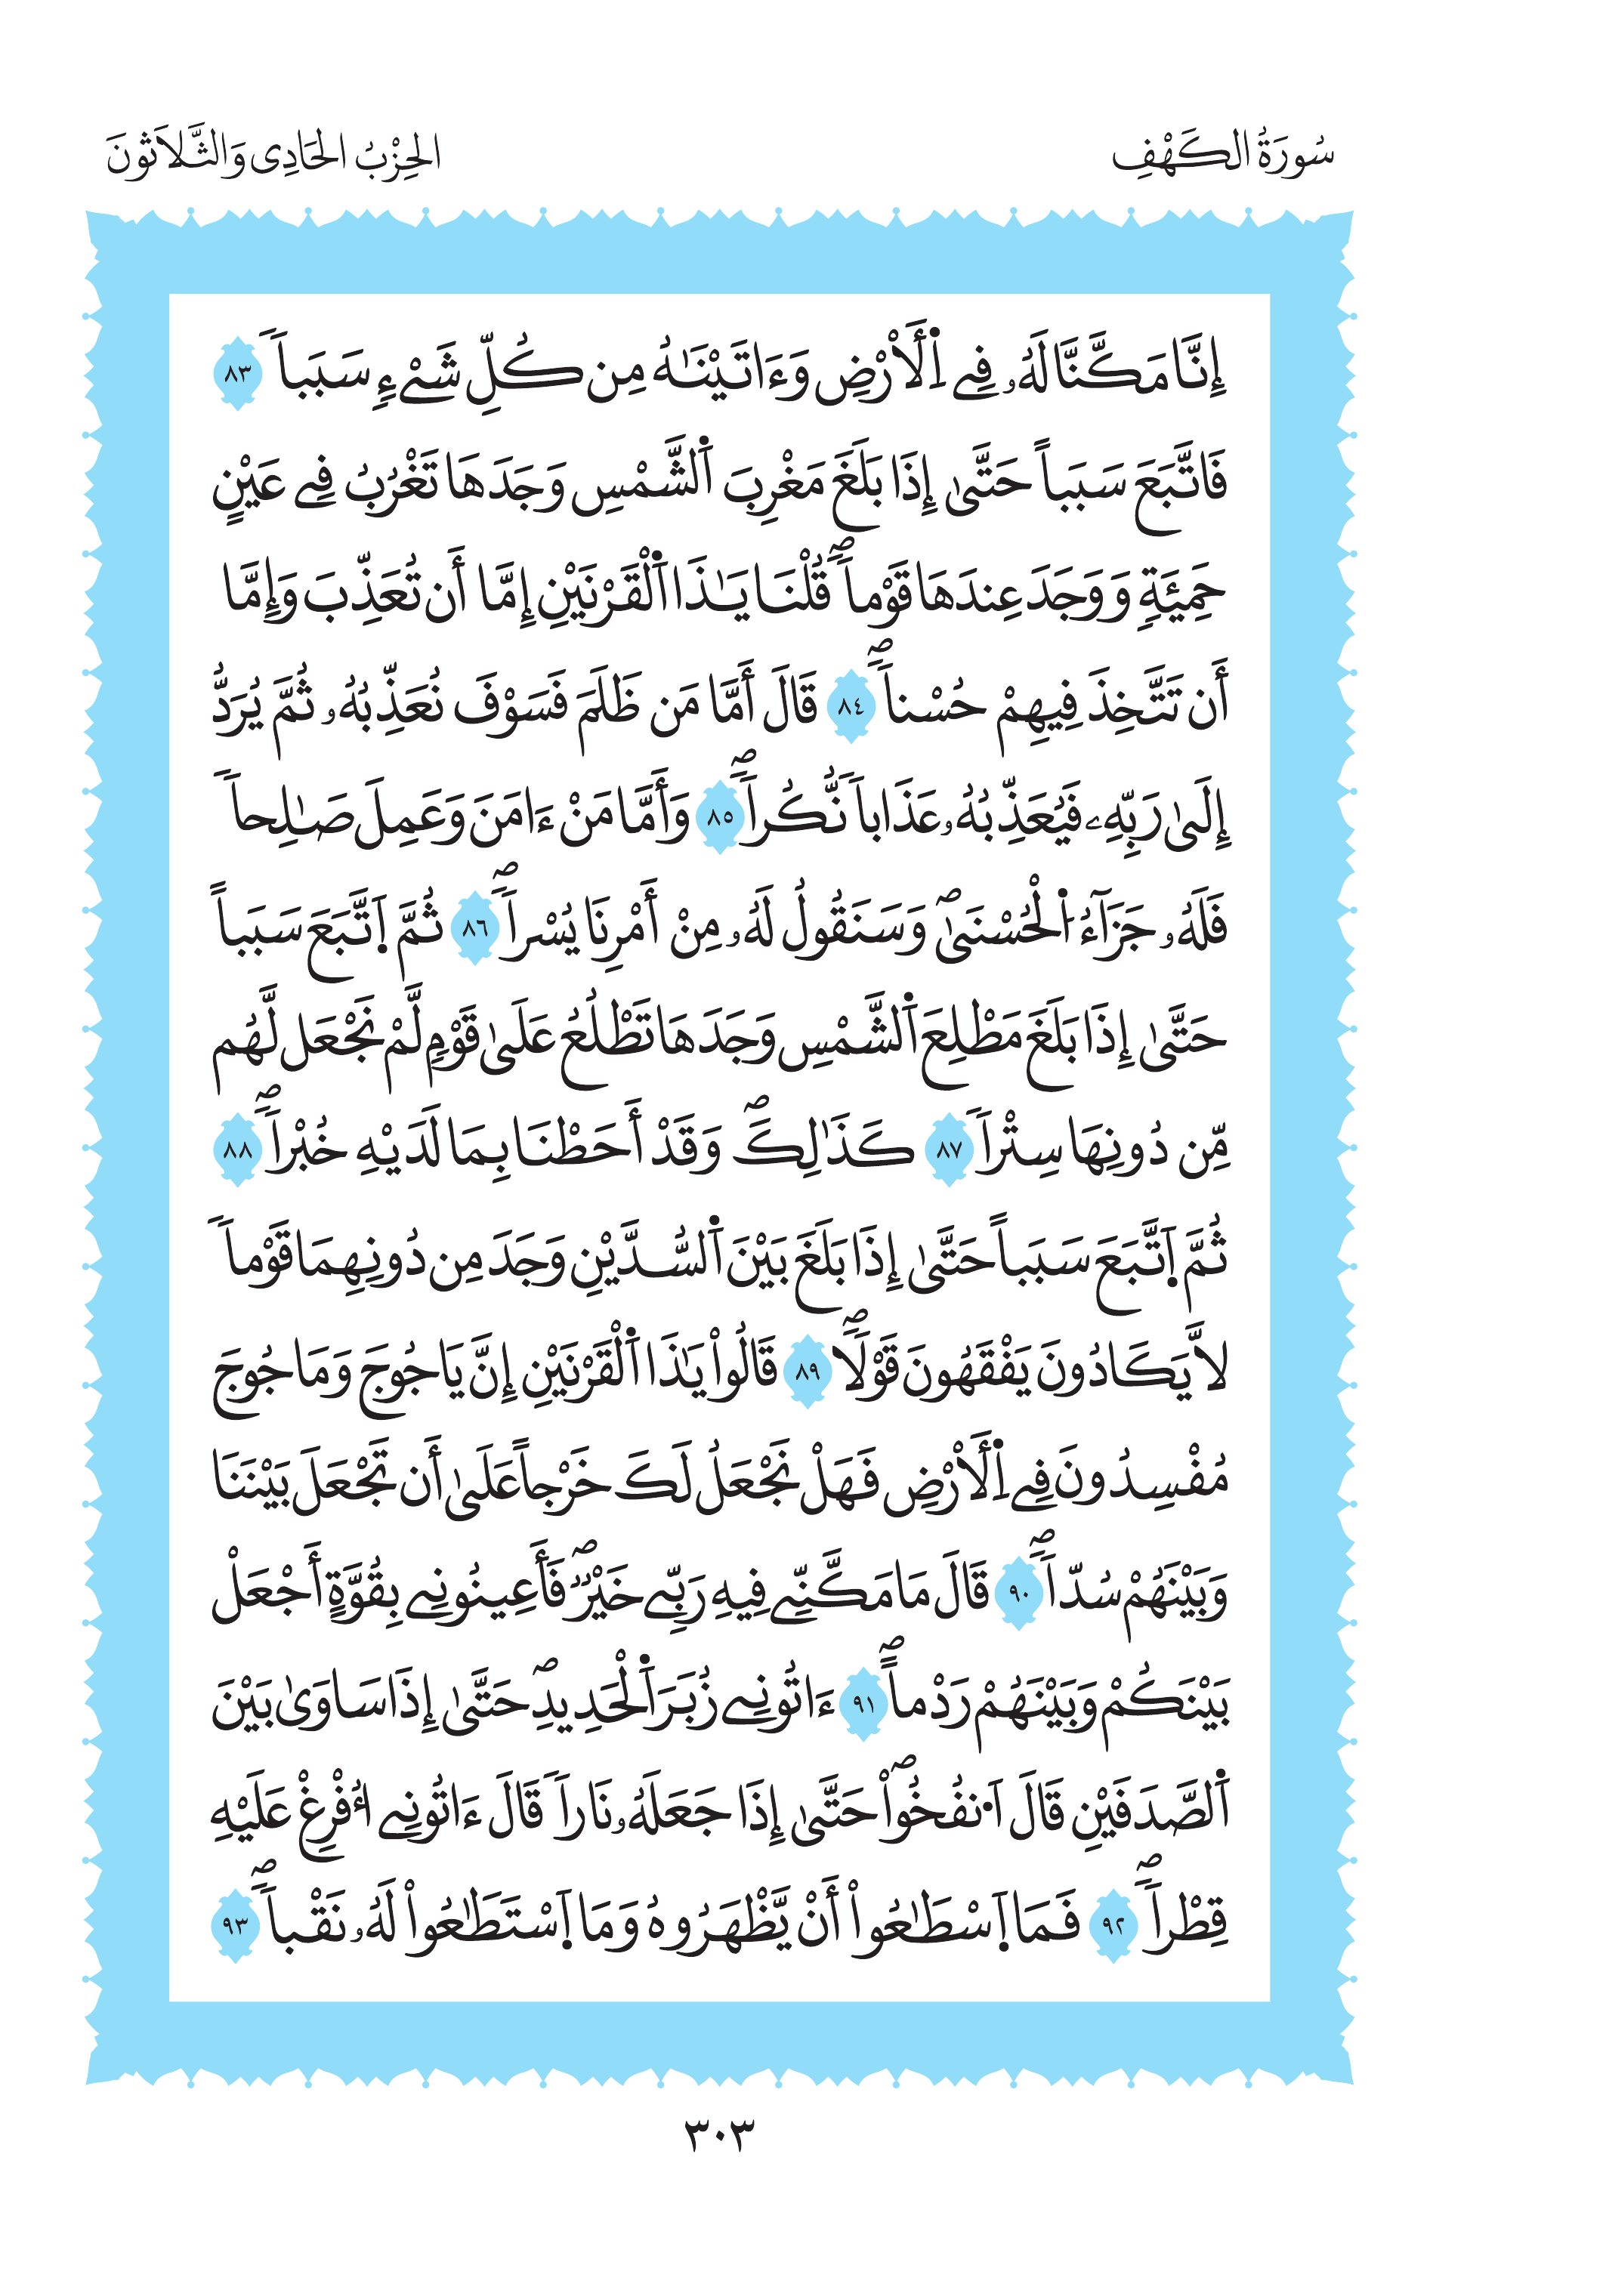 سُورَةُ الكَهْفِ
الحِزْبُ الحَادِى وَالثَّلَاثُونَ
إِنَّا مَكَّنَّا لَهُۥ فِے اِ۬لَارْضِ وَءَاتَيْنَٰهُ مِن كُلِّ شَےْءٖ سَبَباٗ ٨٣
فَاتَّبَعَ سَبَباً حَتَّىٰ إِذَا بَلَغَ مَغْرِبَ اَ۬لشَّمْسِ وَجَدَهَا تَغْرُبُ فِے عَيْنٍ
حَمِئَةٖ وَوَجَدَ عِندَهَا قَوْماٗۖ قُلْنَا يَٰذَا اَ۬لْقَرْنَيْنِ إِمَّا أَن تُعَذِّبَ وَإِمَّا
أَن تَتَّخِذَ فِيهِمْ حُسْناٗۖ ٨٤ قَالَ أَمَّا مَن ظَلَمَ فَسَوْفَ نُعَذِّبُهُۥ ثُمَّ يُرَدُّ
إِلَىٰ رَبِّهِۦ فَيُعَذِّبُهُۥ عَذَاباٗ نُّكُراٗۖ ٨٥ وَأَمَّا مَنْ ءَامَنَ وَعَمِلَ صَٰلِحاٗ
فَلَهُۥ جَزَآءُ اُ۬لْحُسْنَىٰۖ وَسَنَقُولُ لَهُۥ مِنْ أَمْرِنَا يُسْراٗۖ ٨٦ ثُمَّ اَ۪تَّبَعَ سَبَباً
حَتَّىٰ إِذَا بَلَغَ مَطْلِعَ اَ۬لشَّمْسِ وَجَدَهَا تَطْلُعُ عَلَىٰ قَوْمٖ لَّمْ نَجْعَل لَّهُم
مِّن دُونِهَا سِتْراٗ ٨٧ كَذَٰلِكَۖ وَقَدْ أَحَطْنَا بِمَا لَدَيْهِ خُبْراٗۖ ٨٨
ثُمَّ اَ۪تَّبَعَ سَبَباً حَتَّىٰ إِذَا بَلَغَ بَيْنَ اَ۬لسُّدَّيْنِ وَجَدَ مِن دُونِهِمَا قَوْماٗ
لَا يَكَادُونَ يَفْقَهُونَ قَوْلاٗۖ ٨٩ قَالُواْ يَٰذَا اَ۬لْقَرْنَيْنِ إِنَّ يَاجُوجَ وَمَاجُوجَ
مُفْسِدُونَ فِے اِ۬لَارْضِ فَهَلْ نَجْعَلُ لَكَ خَرْجاً عَلَىٰ أَن تَجْعَلَ بَيْنَنَا
وَبَيْنَهُمْ سُدّاٗۖ ٩٠ قَالَ مَا مَكَّنِّے فِيهِ رَبِّے خَيْرٞۖ فَأَعِينُونِے بِقُوَّةٍ أَجْعَلْ
بَيْنَكُمْ وَبَيْنَهُمْ رَدْماًۖ ٩١ ءَاتُونِے زُبَرَ اَ۬لْحَدِيدِۖ حَتَّىٰ إِذَا سَاوَىٰ بَيْنَ
اَ۬لصَّدَفَيْنِ قَالَ اَ۟نفُخُواْۖ حَتَّىٰ إِذَا جَعَلَهُۥ نَاراٗ قَالَ ءَاتُونِے أُفْرِغْ عَلَيْهِ
قِطْراٗۖ ٩٢ فَمَا اَ۪سْطَٰعُواْ أَنْ يَّظْهَرُوهُ وَمَا اَ۪سْتَطَٰعُواْ لَهُۥ نَقْباٗۖ ٩٣
٣٠٣